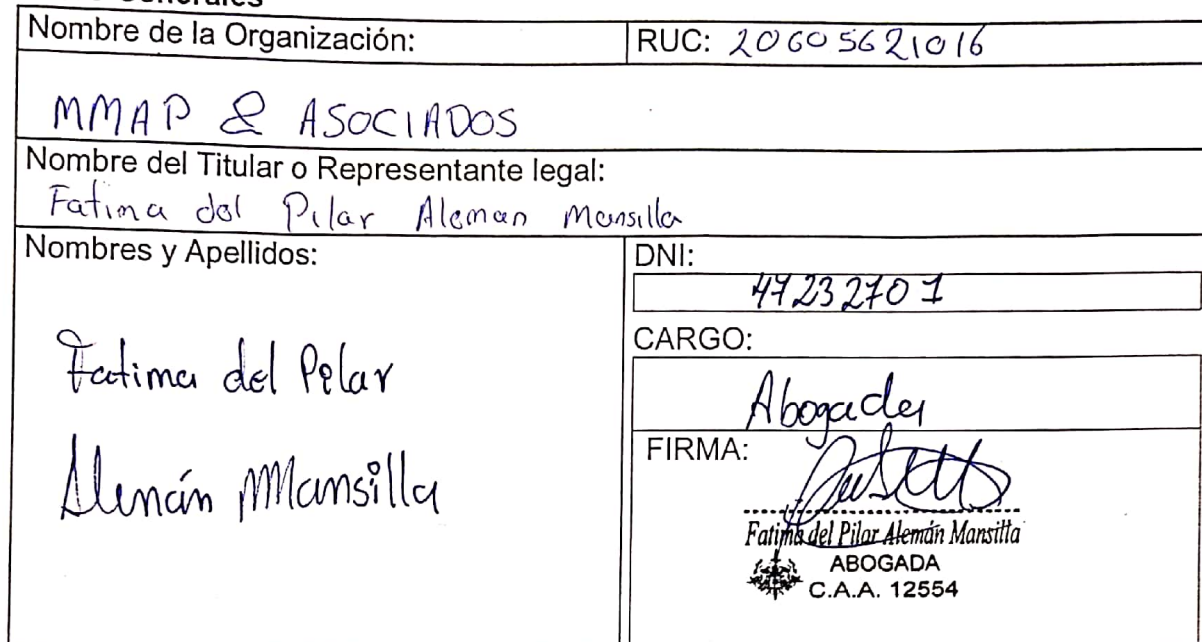 Generales
Nombre de la Organización:
RUC: 20605621016
MMAP & ASOCIADOS
Nombre del Titular o Representante legal:
Fatima del Pilar Aleman Mansilla
Nombres y Apellidos:
Fatima del Pilar
Alemán Mansilla
DNI:
47232701
CARGO:
Abogada
FIRMA:
Fatima del Pilar Alemán Mansilla
ABOGADA
C.A.A. 12554